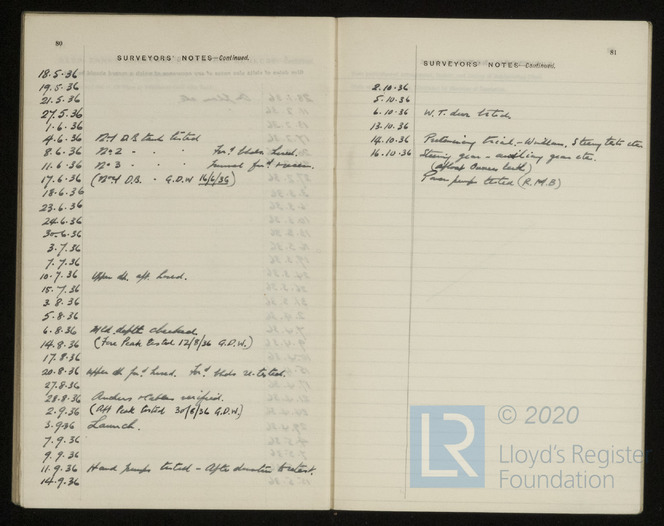 80
SURVEYORS' NOTES—Continued.
18.5.36
19.5.36
21.5.36
27.5.36
1.6.36
4.6.36 No 1 D.B tank tested
8.6.36 No 2 " For'd hosed.
11.6.36 No 3 " " " for'd
17.6.36 (No 4 D.B. " G.D.W 16/6/36)
18.6.36
23.6.36
24.6.36
30.6.36
3.7.36
7.7.36
10.7.36 Upper dk. aft. hosed.
15.7.36
3.8.36
5.8.36
6.8.36 Mld. depth checked
14.8.36 (Fore Peak tested 12/8/36 G.D.W.)
17.8.36
20.8.36 Upper dk for'd hosed. For'd bhds re-tested.
27.8.36
28.8.36 Anchors & Cables verified.
2.9.36 (Aft Peak tested 30/8/36 G.D.W.)
3.9.36 Launch.
7.9.36
9.9.36
11.9.36 Hand pumps tested - After
14.9.36
81
SURVEYORS' NOTES—Continued.
2.10.36
5.10.36
6.10.36 W.T. doors tested
13.10.36
14.10.36 trial. - Windlass, Steering tests etc.
16.10.36 Steering gear - auxiliary gear etc.
(afloat Owners berth)
Power pumps tested (R.M.B)
LR © 2020
Lloyd's Register
Foundation